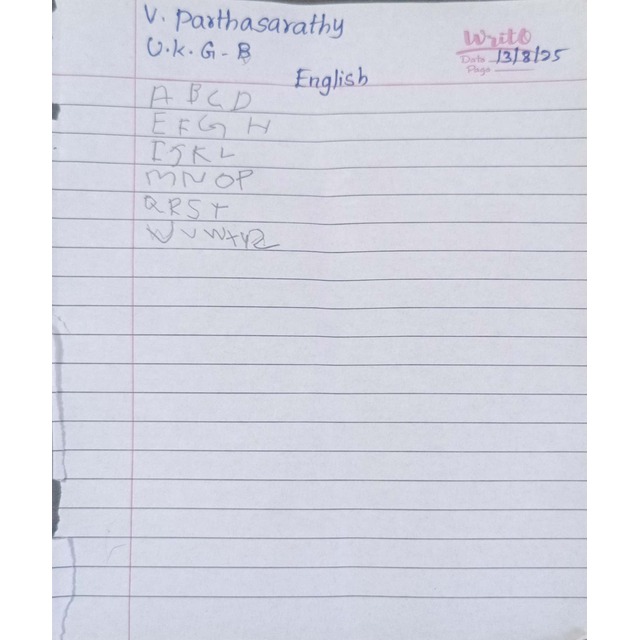 V. Parthasarathy
U.K.G-B
Write
Date 13/8/25
Page
English
A B C D
E F G H
I J K L
M N O P
Q R S T
U V W X Y Z